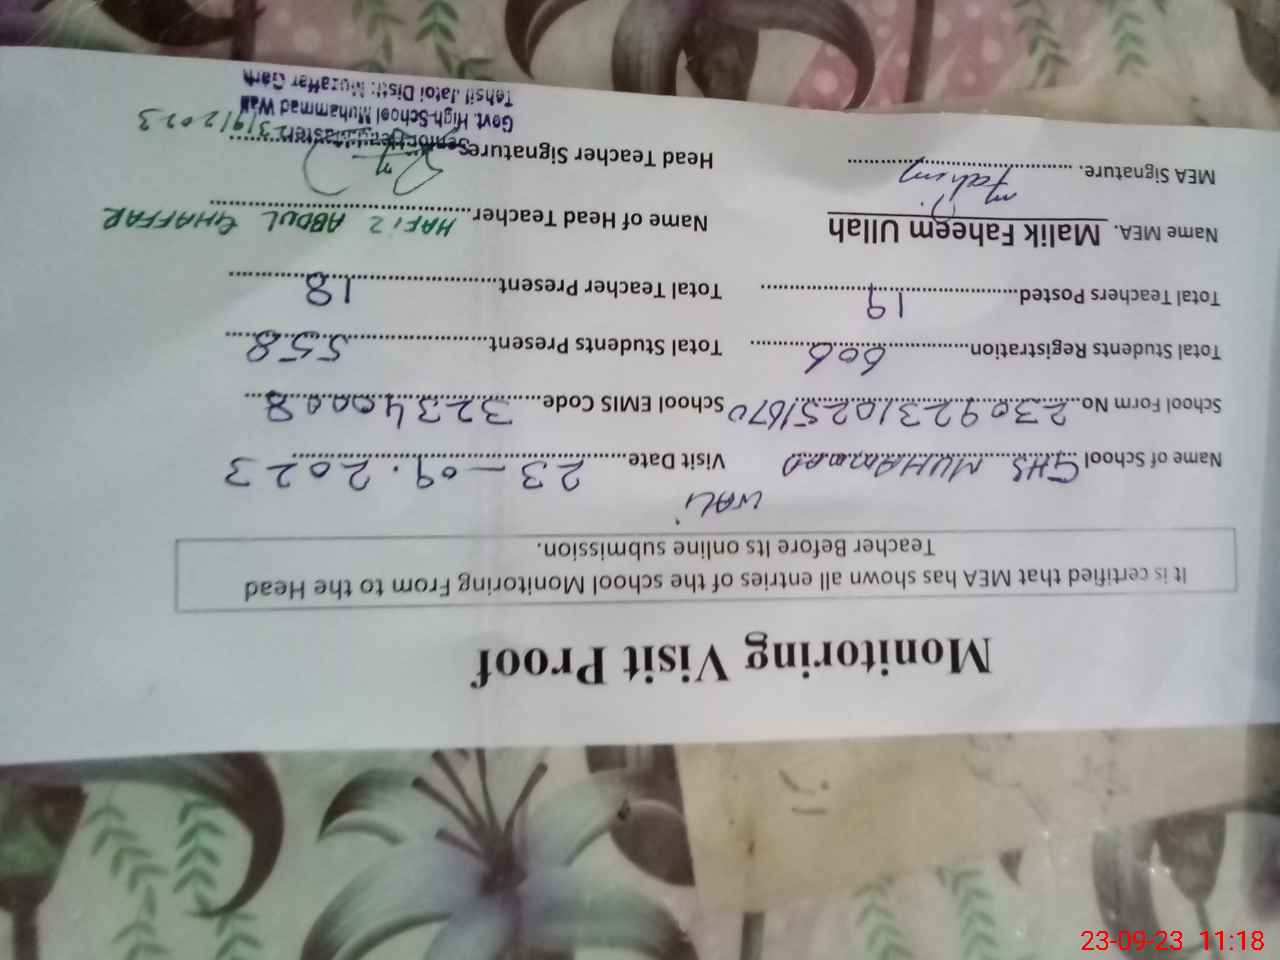 Monitoring Visit Proof
It is certified that MEA has shown all entries of the school Monitoring From to the Head
Teacher Before Its online submission.
Name of School GHS MUHAMMAD WALI Visit Date 23-09.2023
School Form No. 23092310251670 School EMIS Code 32340008
Total Students Registration 606 Total Students Present 558
Total Teachers Posted 19 Total Teacher Present 18
Name MEA. Malik Faheem Ullah Name of Head Teacher HAFIZ ABDUL GHAFFAR
MEA Signature. M Fahim Head Teacher Signature 23/9/2023
Senior Headmaster
Govt. High School Muhammad Wali
Tehsil Jatoi Distt: Muzaffar Garh
23-09-23 11:18